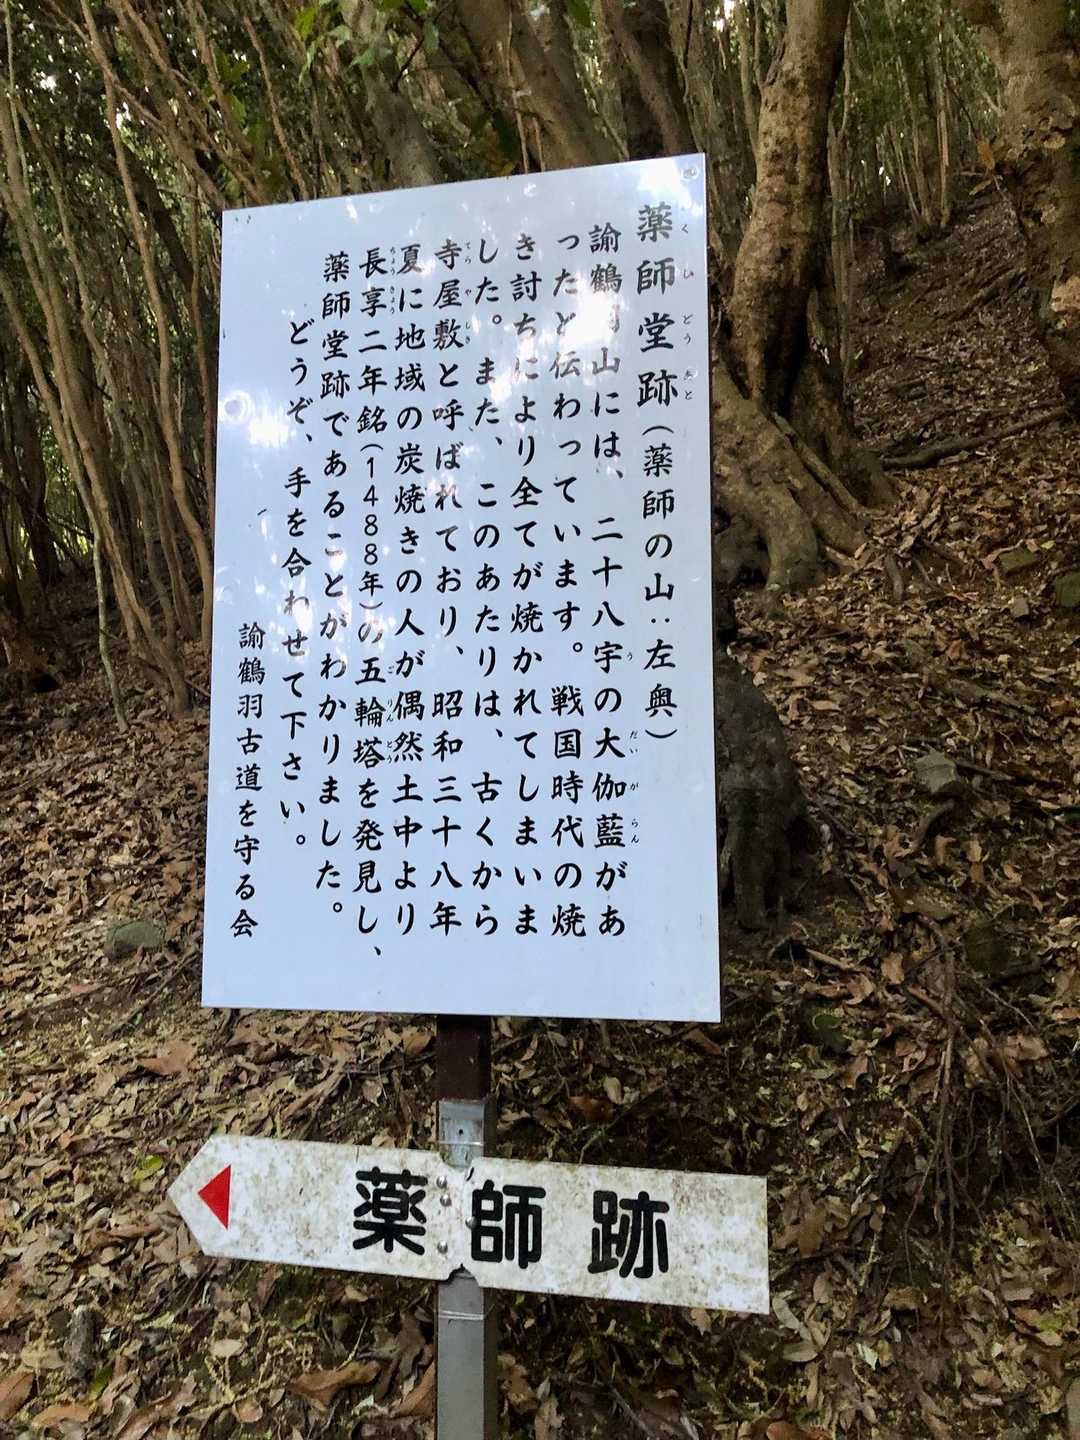 薬師堂跡（薬師の山：左奥）
諭鶴羽山には、二十八宇の大伽藍があ
ったと伝わっています。戦国時代の焼
き討ちにより全てが焼かれてしまいま
した。また、このあたりは、古くから
寺屋敷と呼ばれており、昭和三十八年
夏に地域の炭焼きの人が偶然土中より
長享二年銘（1488年）の五輪塔を発見し、
薬師堂跡であることがわかりました。
どうぞ、手を合わせて下さい。
諭鶴羽古道を守る会
薬師跡